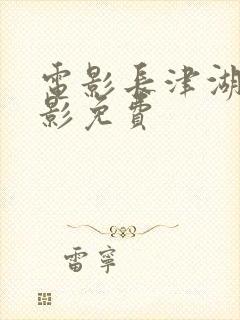 電影長津湖
影免費
雷寧